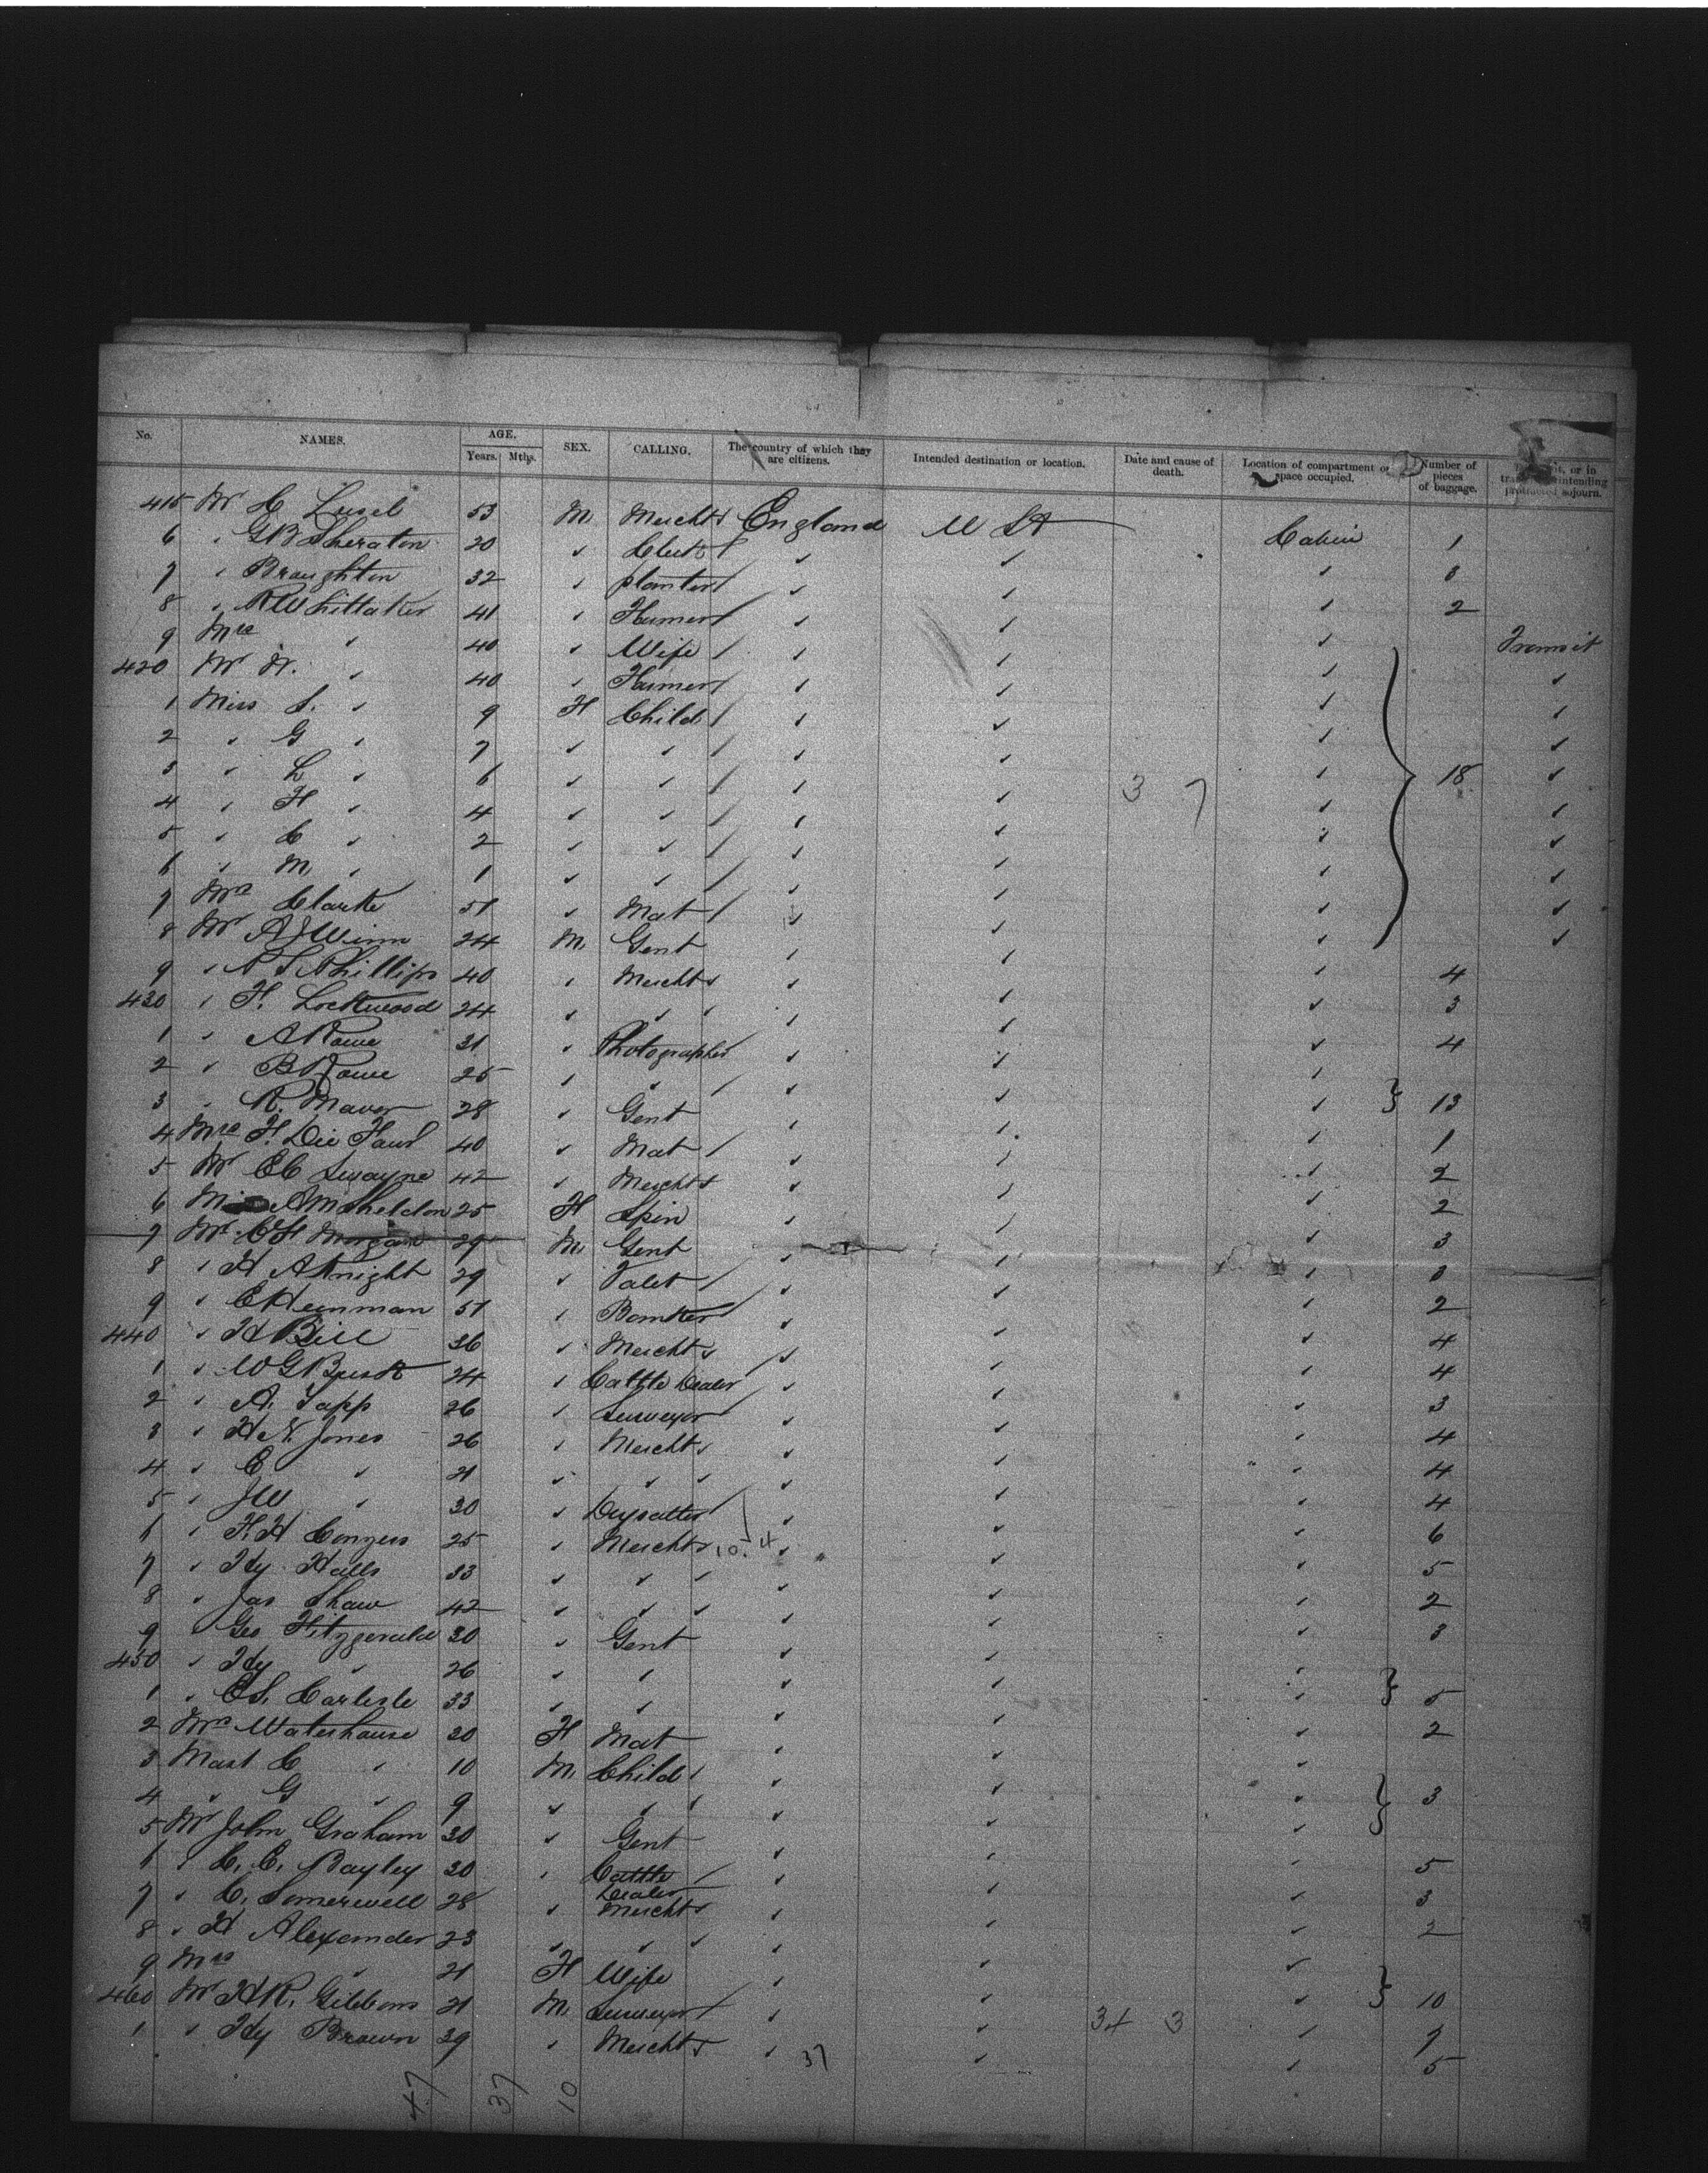 No. NAMES. AGE. Years. Mths. SEX. CALLING. The country of which they are citizens. Intended destination or location. Date and cause of death. Location of compartment or space occupied. Number of pieces of baggage. or in intending protracted sojourn.
415 Mr C 53 M Merchts England U St Cabin 1
6 " G B Sheraton 20 " Clerk " " " 3
7 " Broughton 32 " planter " " " 2
8 " R Whittaker 41 " Farmer " " " Transit
9 Mrs " 40 " Wife " " " "
420 Mr W. " 40 " Farmer " " " "
1 Miss S. " 9 F Child " " " "
2 " G " 7 " " " " " "
3 " L " 6 " " " " 3 7 " 18 "
4 " F " 4 " " " " " "
5 " C " 2 " " " " " "
6 " M " 1 " " " " " "
7 Mrs Clarke 51 " Mat " " " "
8 Mr A J Winn 24 M Gent " " " 4
9 " S Phillips 40 " Merchts " " " 3
430 " F. Lockwood 24 " " " " " 4
1 " A Rowe 31 " Photographer " " "
2 " B Rowe 25 " " " " " 13
3 " R. Mavor 28 " Gent " " " 1
4 Mrs F. 40 " Mat " " " 2
5 Mr E C Swayne 42 " Merchts " " " 2
6 A M Sheldon 25 F Spin " " " 3
7 Mr C F Morgan 29 M Gent " " " 3
8 " H A Knight 29 " Valet " " " 2
9 " C Heinman 51 " Banker " " " 4
440 " H Bill 36 " Merchts " " " 4
1 " W G 24 " Cattle Dealer " " " 3
2 " A. Tapp 26 " Surveyor " " " 4
3 " H N Jones 26 " Merchts " " " 4
4 " C " 21 " " " " " 4
5 " J W " 30 " Drysalter " " " 6
6 " F. H Conyers 25 " Merchts 10. 4 " " " 5
7 " Hy Halls 33 " " " " " 2
8 " Jas Shaw 42 " " " " " 3
9 " Geo Fitzgerald 30 " Gent " " "
450 " Hy " 26 " " " " " 5
1 " E S. Carlisle 33 " " " " " 2
2 Mrs Waterhouse 30 F Mat " " "
3 Mast C " 10 M Child " " " 3
4 " G " 9 " " " " "
5 Mr John Graham 30 " Gent " " " 5
6 " C. C. Bayley 30 " Cattle Dealer " " " 3
7 " C. Somerwell 28 " Merchts " " " 2
8 " H Alexander 23 " " " " "
9 Mrs " 21 F Wife " " " 10
460 Mr H R. Gibbons 21 M Surveyor " " 34 3 " 7
1 " Hy Brown 39 " Merchts " 37 " " 5
47 37 10